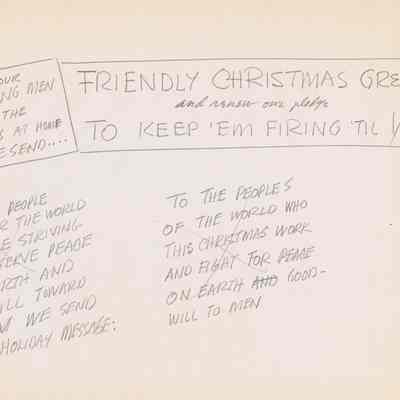 OUR
NG MEN
THE
S AT HOME
E SEND....
FRIENDLY CHRISTMAS GRE
and renew our pledge
TO KEEP 'EM FIRING 'TIL V
PEOPLE
R THE WORLD
E STRIVING
SERVE PEACE
RTH AND
ILL TOWARD
WE SEND
HOLIDAY MESSAGE:
TO THE PEOPLES
OF THE WORLD WHO
THIS CHRISTMAS WORK
AND FIGHT FOR PEACE
ON EARTH AND GOOD-
WILL TO MEN